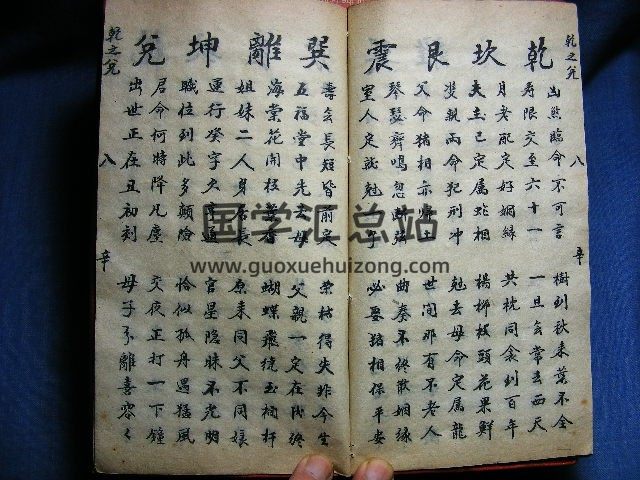 乾之兌
八
辛
乾坎艮震
凶煞臨命不可言 樹到秋來葉不全
壽限交至六十一 一旦無常去西天
月老配定好姻緣 共枕同衾到百年
夫主已定属蛇相 楊柳枝頭花果鮮
雙親両命犯刑冲 尅去母命定属龍
父命猪相亦歸土 世間那有不老人
琴瑟齊鳴忽断弦 曲奏不終散姻緣
室人定就尅子 必要猪相保平安
巽離坤兌
壽夭長短皆前定 榮枯得失非今生
五福堂中先去母 父親一定在後終
海棠花開枝葉香 蝴蝶飛繞玉欄杆
姐妹二人身居長 原来同父不同娘
運行癸字欠亨通 官星隐昧不光明
職位到此多颠險 恰似孤舟遇猛風
君命何時降凡塵 交夜正打一下鐘
出世正在丑初刻 母子分離喜容々
乾之兌
八
辛
国学汇总站
www.guoxuehuizong.com